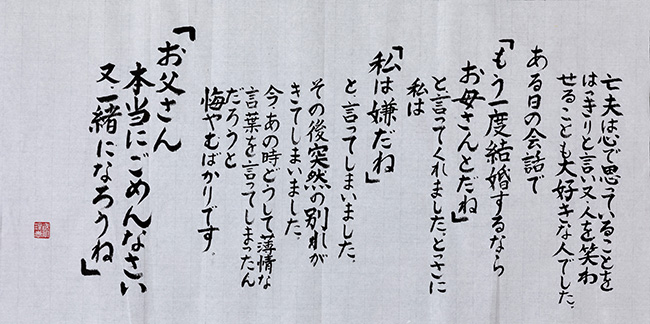 亡夫は心で思っていることを
はっきりと言い又人を笑わ
せることも大好きな人でした。
ある日の会話で
「もう一度結婚するなら
お母さんとだね」
と言ってくれました。とっさに
私は
「私は嫌だね」
と、言ってしまいました。
その後突然の別れが
きてしまいました。
今、あの時どうして薄情な
言葉を言ってしまったん
だろうと
悔やむばかりです。
「お父さん
本当にごめんなさい
又、一緒になろうね」